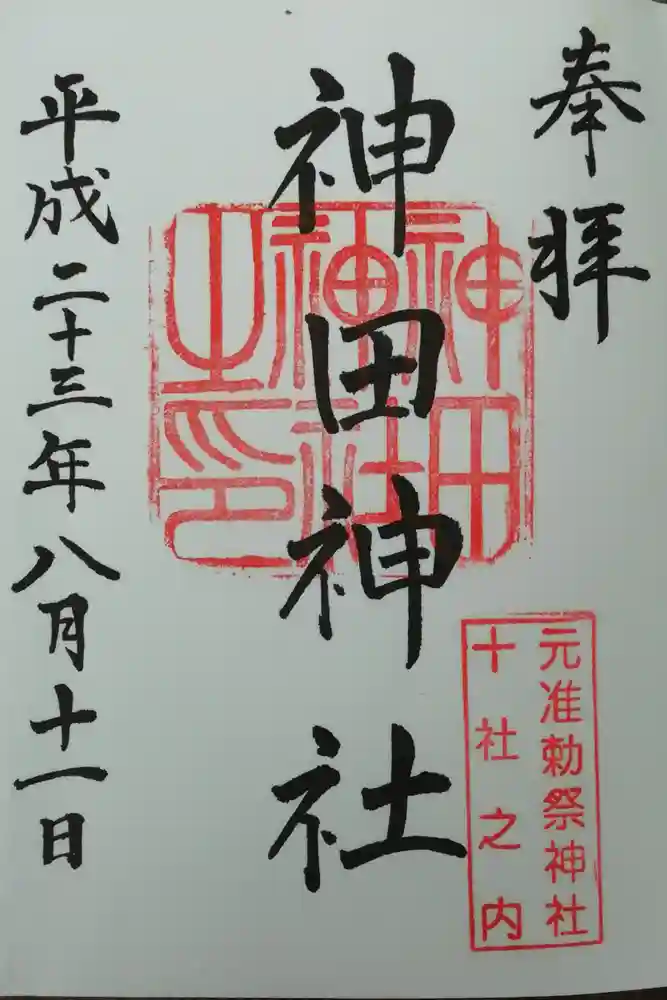 奉拝
神田神社
神田神社之印
元准勅祭神社
十社之内
平成二十三年八月十一日